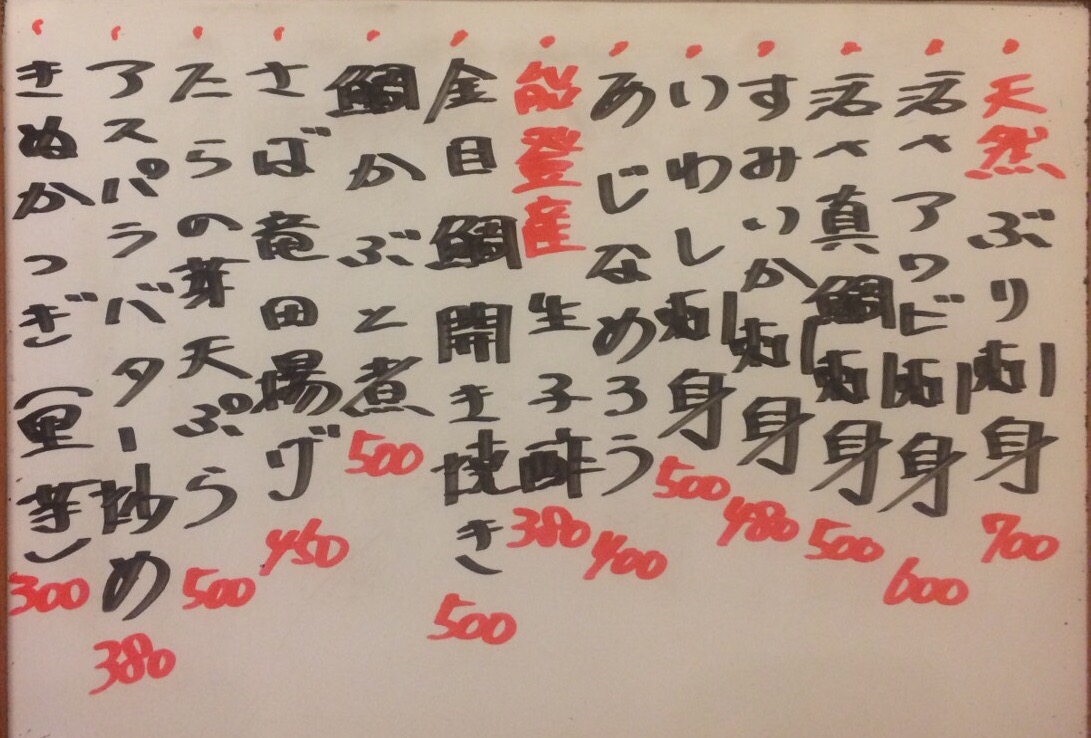 天然ぶり刺身 700
活さアワビ刺身 600
活さ真鯛刺身 500
すみいか刺身 480
いわし刺身 500
あじなめろう 400
能登産生子酢 380
金目鯛開き焼き 500
鯛かぶと煮 500
さば竜田揚げ 450
たらの芽天ぷら 500
アスパラバター炒め 380
きぬかつぎ(里芋) 300